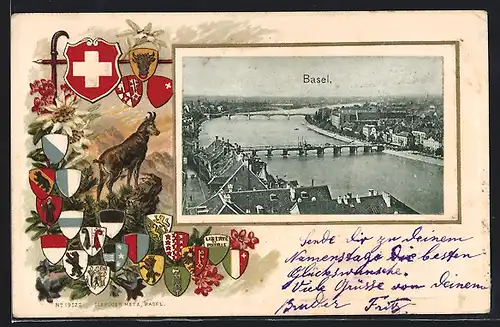 Basel.
LIBERTÉ
PATRIE
Sende Dir zu Deinem
Namenstage die besten
Glückswünsche.
Viele Grüsse von Deinem
Bruder Fritz.
METZ, BASEL.